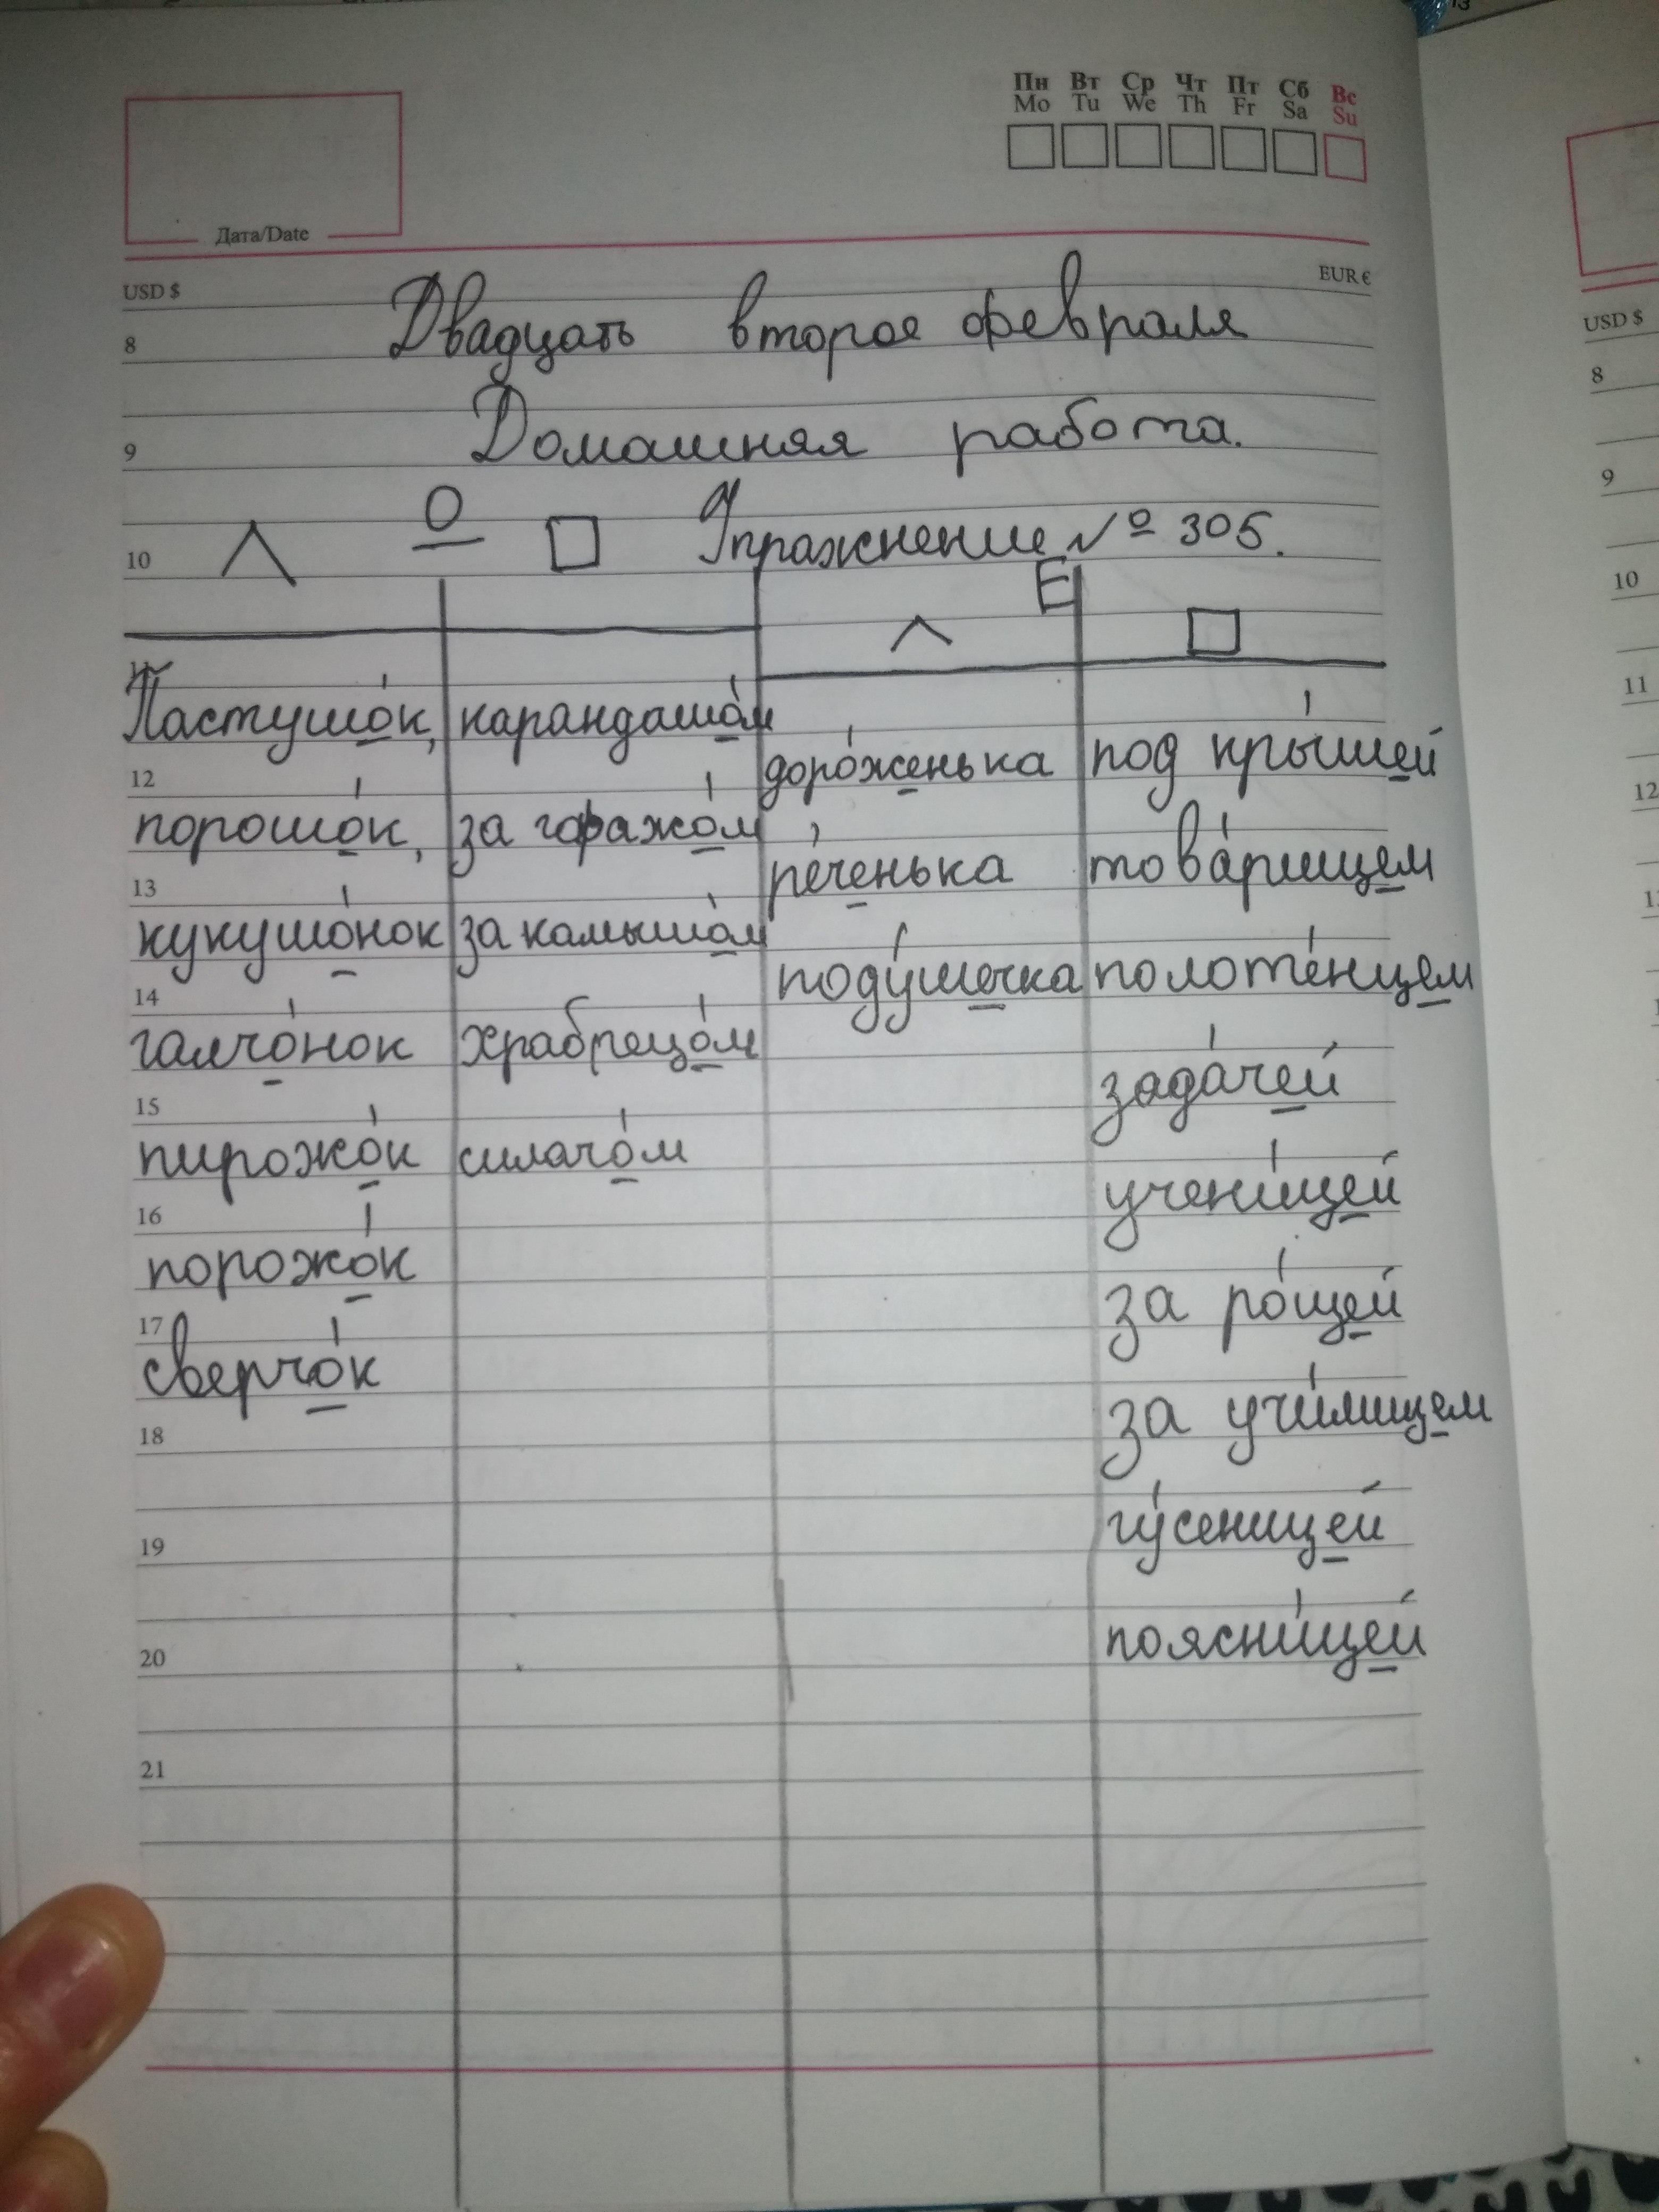 Пн Вт Ср Чт Пт Сб Вс
Mo Tu We Th Fr Sa Su
Дата/Date
USD $ EUR €
8 Двадцать второе февраля
9 Домашняя работа.
10 О Упражнение № 305.
Е
Пастушо́к, карандашо́м
доро́женька под кры́шей
12
порошо́к, за гаражо́м
ре́ченька това́рищем
13
кукушо́нок за камышо́м
поду́шечка полоте́нцем
14
галчо́нок храбрецо́м
зада́чей
15
пирожо́к силачо́м
учени́цей
16
порожо́к
за ро́щей
17
сверчо́к
за учи́лищем
18
гу́сеницей
19
поясни́цей
20
21
USD $
8
9
10
11
12